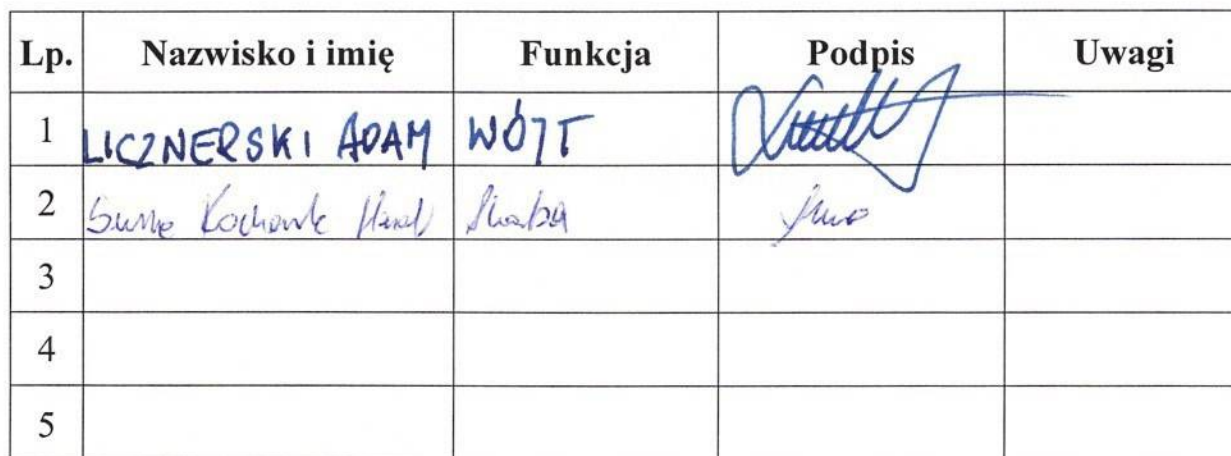 Lp. Nazwisko i imię Funkcja Podpis Uwagi
1 LICZNERSKI ADAM WÓJT
2
3
4
5